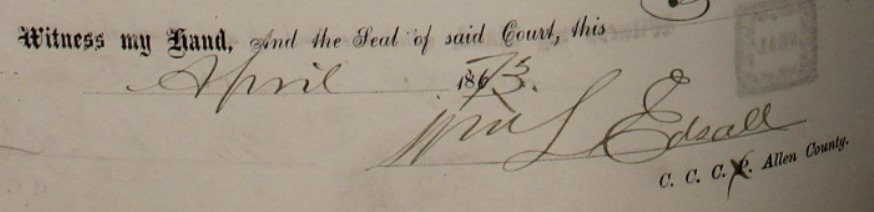 Witness my Hand, And the Seal of said Court, this
April 1873.
Wm S Edsall
C. C. C. P. Allen County.
SEAL